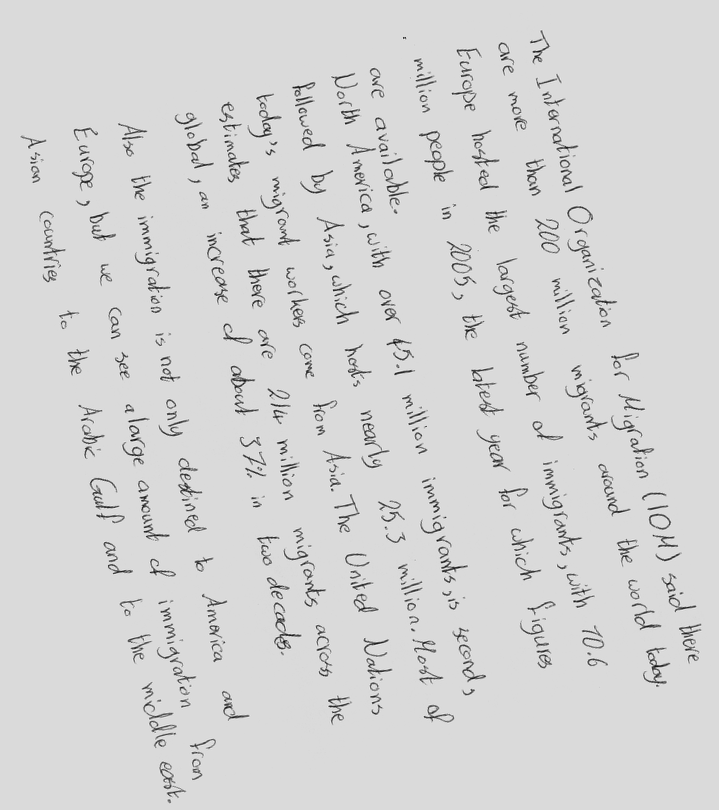 The International Organization for Migration (IOM) said there
are more than 200 million migrants around the world today.
Europe hosted the largest number of immigrants, with 70.6
million people in 2005, the latest year for which figures
are available.
North America, with over 45.1 million immigrants, is second,
followed by Asia, which hosts nearly 25.3 million. Most of
today's migrant workers come from Asia. The United Nations
estimates that there are 214 million migrants across the
global, an increase of about 37% in two decades.
Also the immigration is not only destined to America and
Europe, but we can see a large amount of immigration from
Asian countries to the Arabic Gulf and to the middle east.